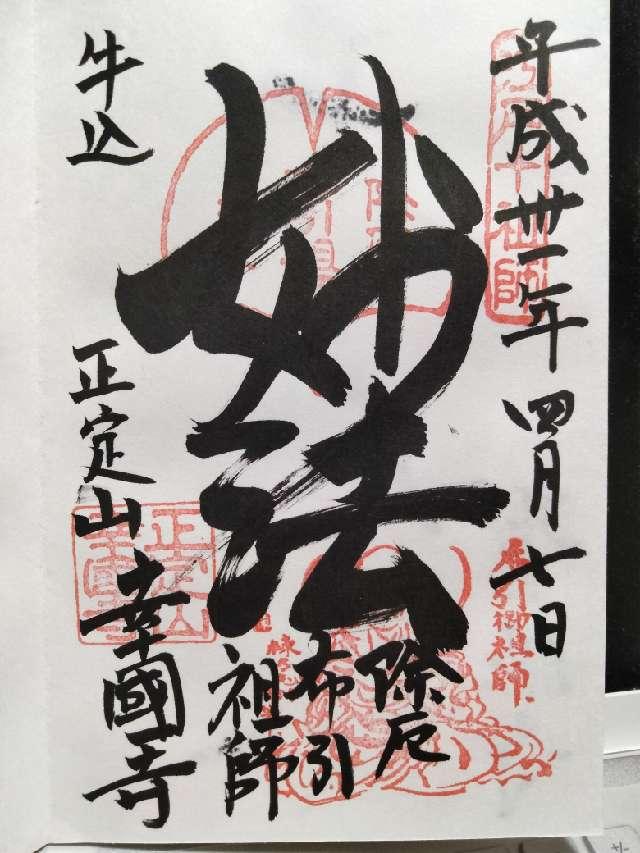 平成卅一年四月七日
妙法
除厄
布引
祖師
牛込
正定山幸國寺
布引御祖師